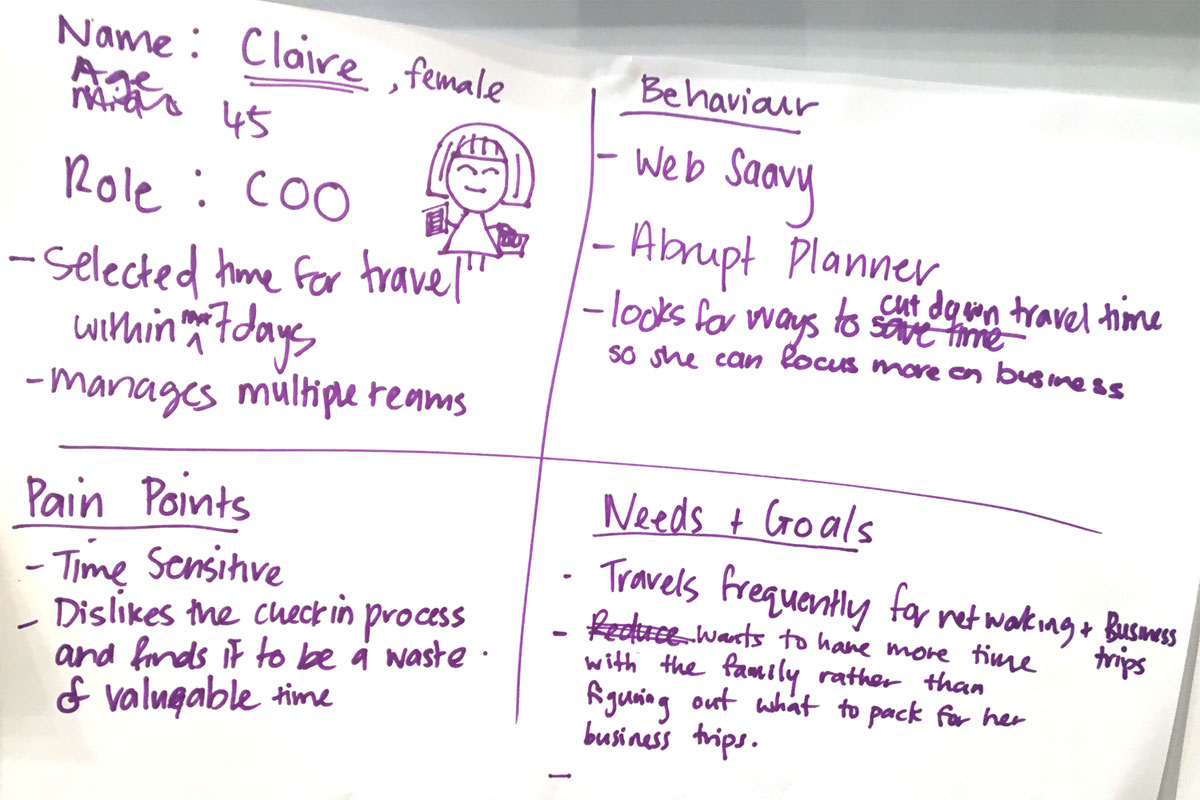 Name: Claire, female
Age 45
Role: COO
- Selected time for travel
within max 7 days
- manages multiple teams
Behaviour
- Web Saavy
- Abrupt Planner
- looks for ways to cut down travel time
save time
so she can focus more on business
Pain Points
- Time Sensitive
- Dislikes the check in process
and finds it to be a waste
of valueable time
Needs + Goals
- Travels frequently for networking + Business
trips
- Reduce wants to have more time
with the family rather than
figuring out what to pack for her
business trips.